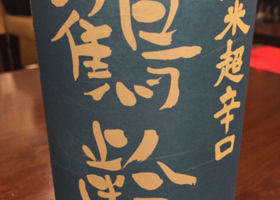 米超辛口
鶴齢